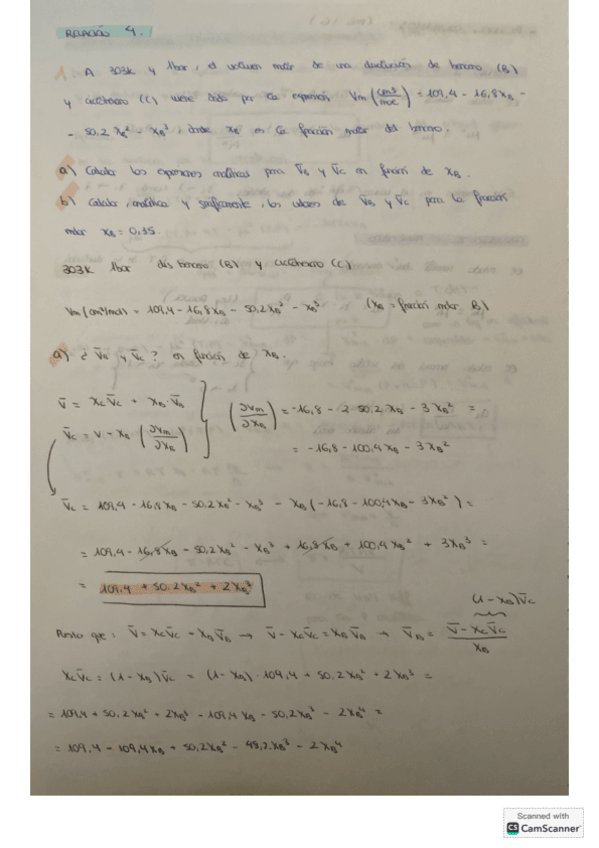 RELACIÓN 4.
1. A 303K y 1bar, el volumen molar de una disolución de benceno (B)
y ciclohexano (C) viene dado por la expresión Vm (cm³/mol) = 109,4 - 16,8xB -
- 50,2 xB² - xB³, donde xB es la fracción molar del benceno.
a) Calcular las expresiones analíticas para V̄B y V̄C en función de xB.
b) Calcular, analítica y gráficamente, los valores de V̄B y V̄C para la fracción
molar xB = 0,35
303K 1bar dis benceno (B) y ciclohexano (C)
Vm (cm³/mol) = 109,4 - 16,8xB - 50,2xB² - xB³ (xB = fracción molar B)
a) ¿ V̄B y V̄C ? en función de xB.
V̄ = xC V̄C + xB · V̄B
V̄C = V - xB · (∂Vm/∂xB)
(∂Vm/∂xB) = -16,8 - 2·50,2xB - 3xB² =
= -16,8 - 100,4xB - 3xB²
V̄C = 109,4 - 16,8xB - 50,2xB² - xB³ - xB (-16,8 - 100,4xB - 3xB²) =
= 109,4 - 16,8xB - 50,2xB² - xB³ + 16,8xB + 100,4xB² + 3xB³ =
= 109,4 + 50,2xB² + 2xB³
(1 - xB)V̄C
Puesto que: V̄ = xC V̄C - xB V̄B → V̄ - xC V̄C = xB V̄B → V̄B = (V̄ - xC V̄C)/xB
xC V̄C = (1 - xB) V̄C = (1 - xB) · 109,4 + 50,2xB² + 2xB³ =
= 109,4 + 50,2xB² + 2xB³ - 109,4xB - 50,2xB³ - 2xB⁴ =
= 109,4 - 109,4xB + 50,2xB² - 48,2xB³ - 2xB⁴
Scanned with
CS CamScanner